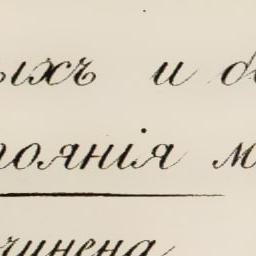 ыхъ и б
тоянія м
чинена